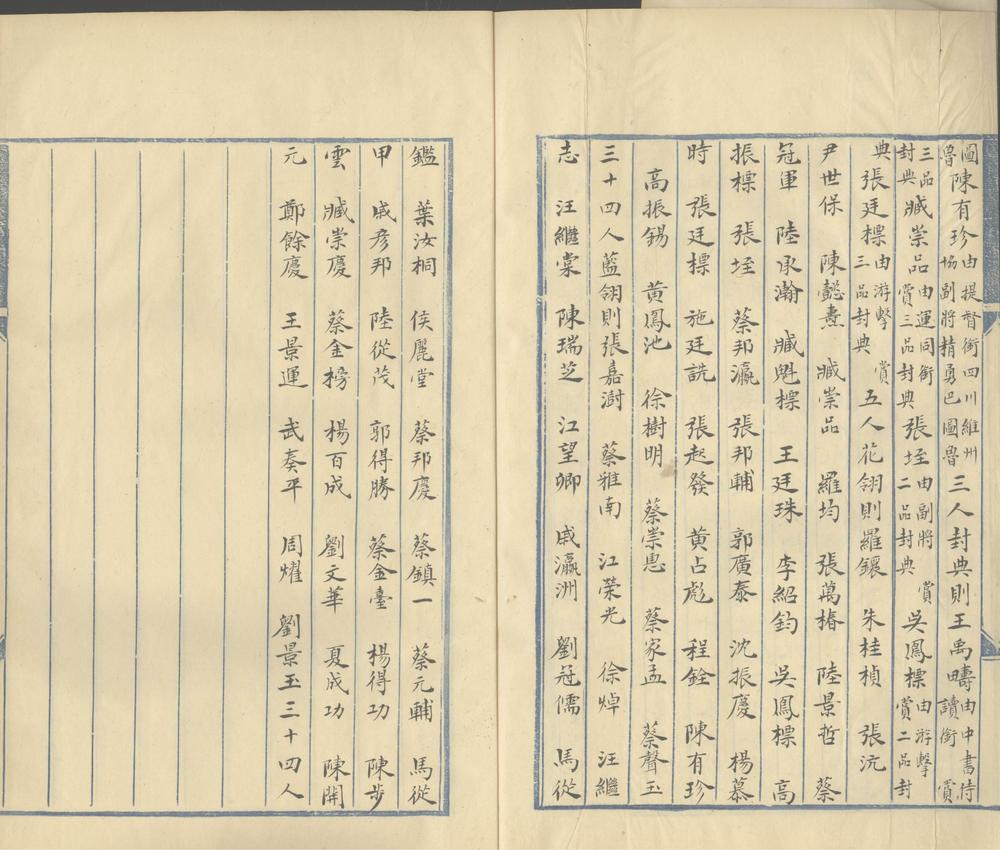 圖魯陳有珍由提督銜四川維州協副將精勇巴圖魯三人封典則王禹疇由中書待讀銜賞
三品封典臧崇品由運同銜賞三品封典張埕由副將賞二品封典吳鳳標由游擊賞二品封
典張廷標由游擊賞三品封典五人花翎則羅鑲　朱桂楨　張沅
尹世保　陳懿燾　臧崇品　羅均　張萬椿　陸景哲　蔡
冠軍　陸承瀚　臧魁標　王廷珠　李紹鈞　吳鳳標　高
振標　張埕　蔡邦瀛　張邦輔　郭廣泰　沈振慶　楊慕
時　張廷標　施廷詵　張起發　黃占彪　程銓　陳有珍
高振錫　黃鳳池　徐樹明　蔡崇恩　蔡家孟　蔡聲玉
三十四人藍翎則張嘉澍　蔡雅南　江榮光　徐焯　汪繼
志　汪繼棠　陳瑞芝　江望卿　戚瀛洲　劉冠儒　馬從
鑑　葉汝桐　侯麗堂　蔡邦慶　蔡鎮一　蔡元輔　馬從
甲　戚彥邦　陸從茂　郭得勝　蔡金臺　楊得功　陳步
雲　臧崇慶　蔡金榜　楊百成　劉文華　夏成功　陳開
元　鄭餘慶　王景運　武奏平　周燿　劉景玉三十四人